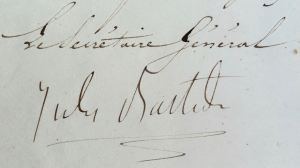 Le Secrétaire Général
Jules Bastide